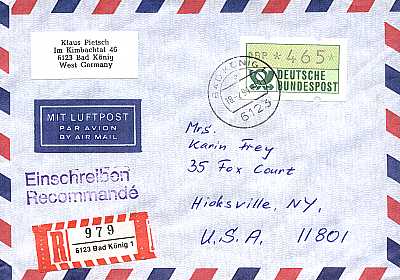 Klaus Pietsch
Im Kimbachtal 46
6123 Bad König
West Germany
BAD KÖNIG
6123
DBP *465*
DEUTSCHE
BUNDESPOST
MIT LUFTPOST
PAR AVION
BY AIR MAIL
Einschreiben
Recommandé
R
979
6123 Bad König 1
Mrs.
Karin Frey
35 Fox Court
Hicksville, NY,
U.S.A. 11801